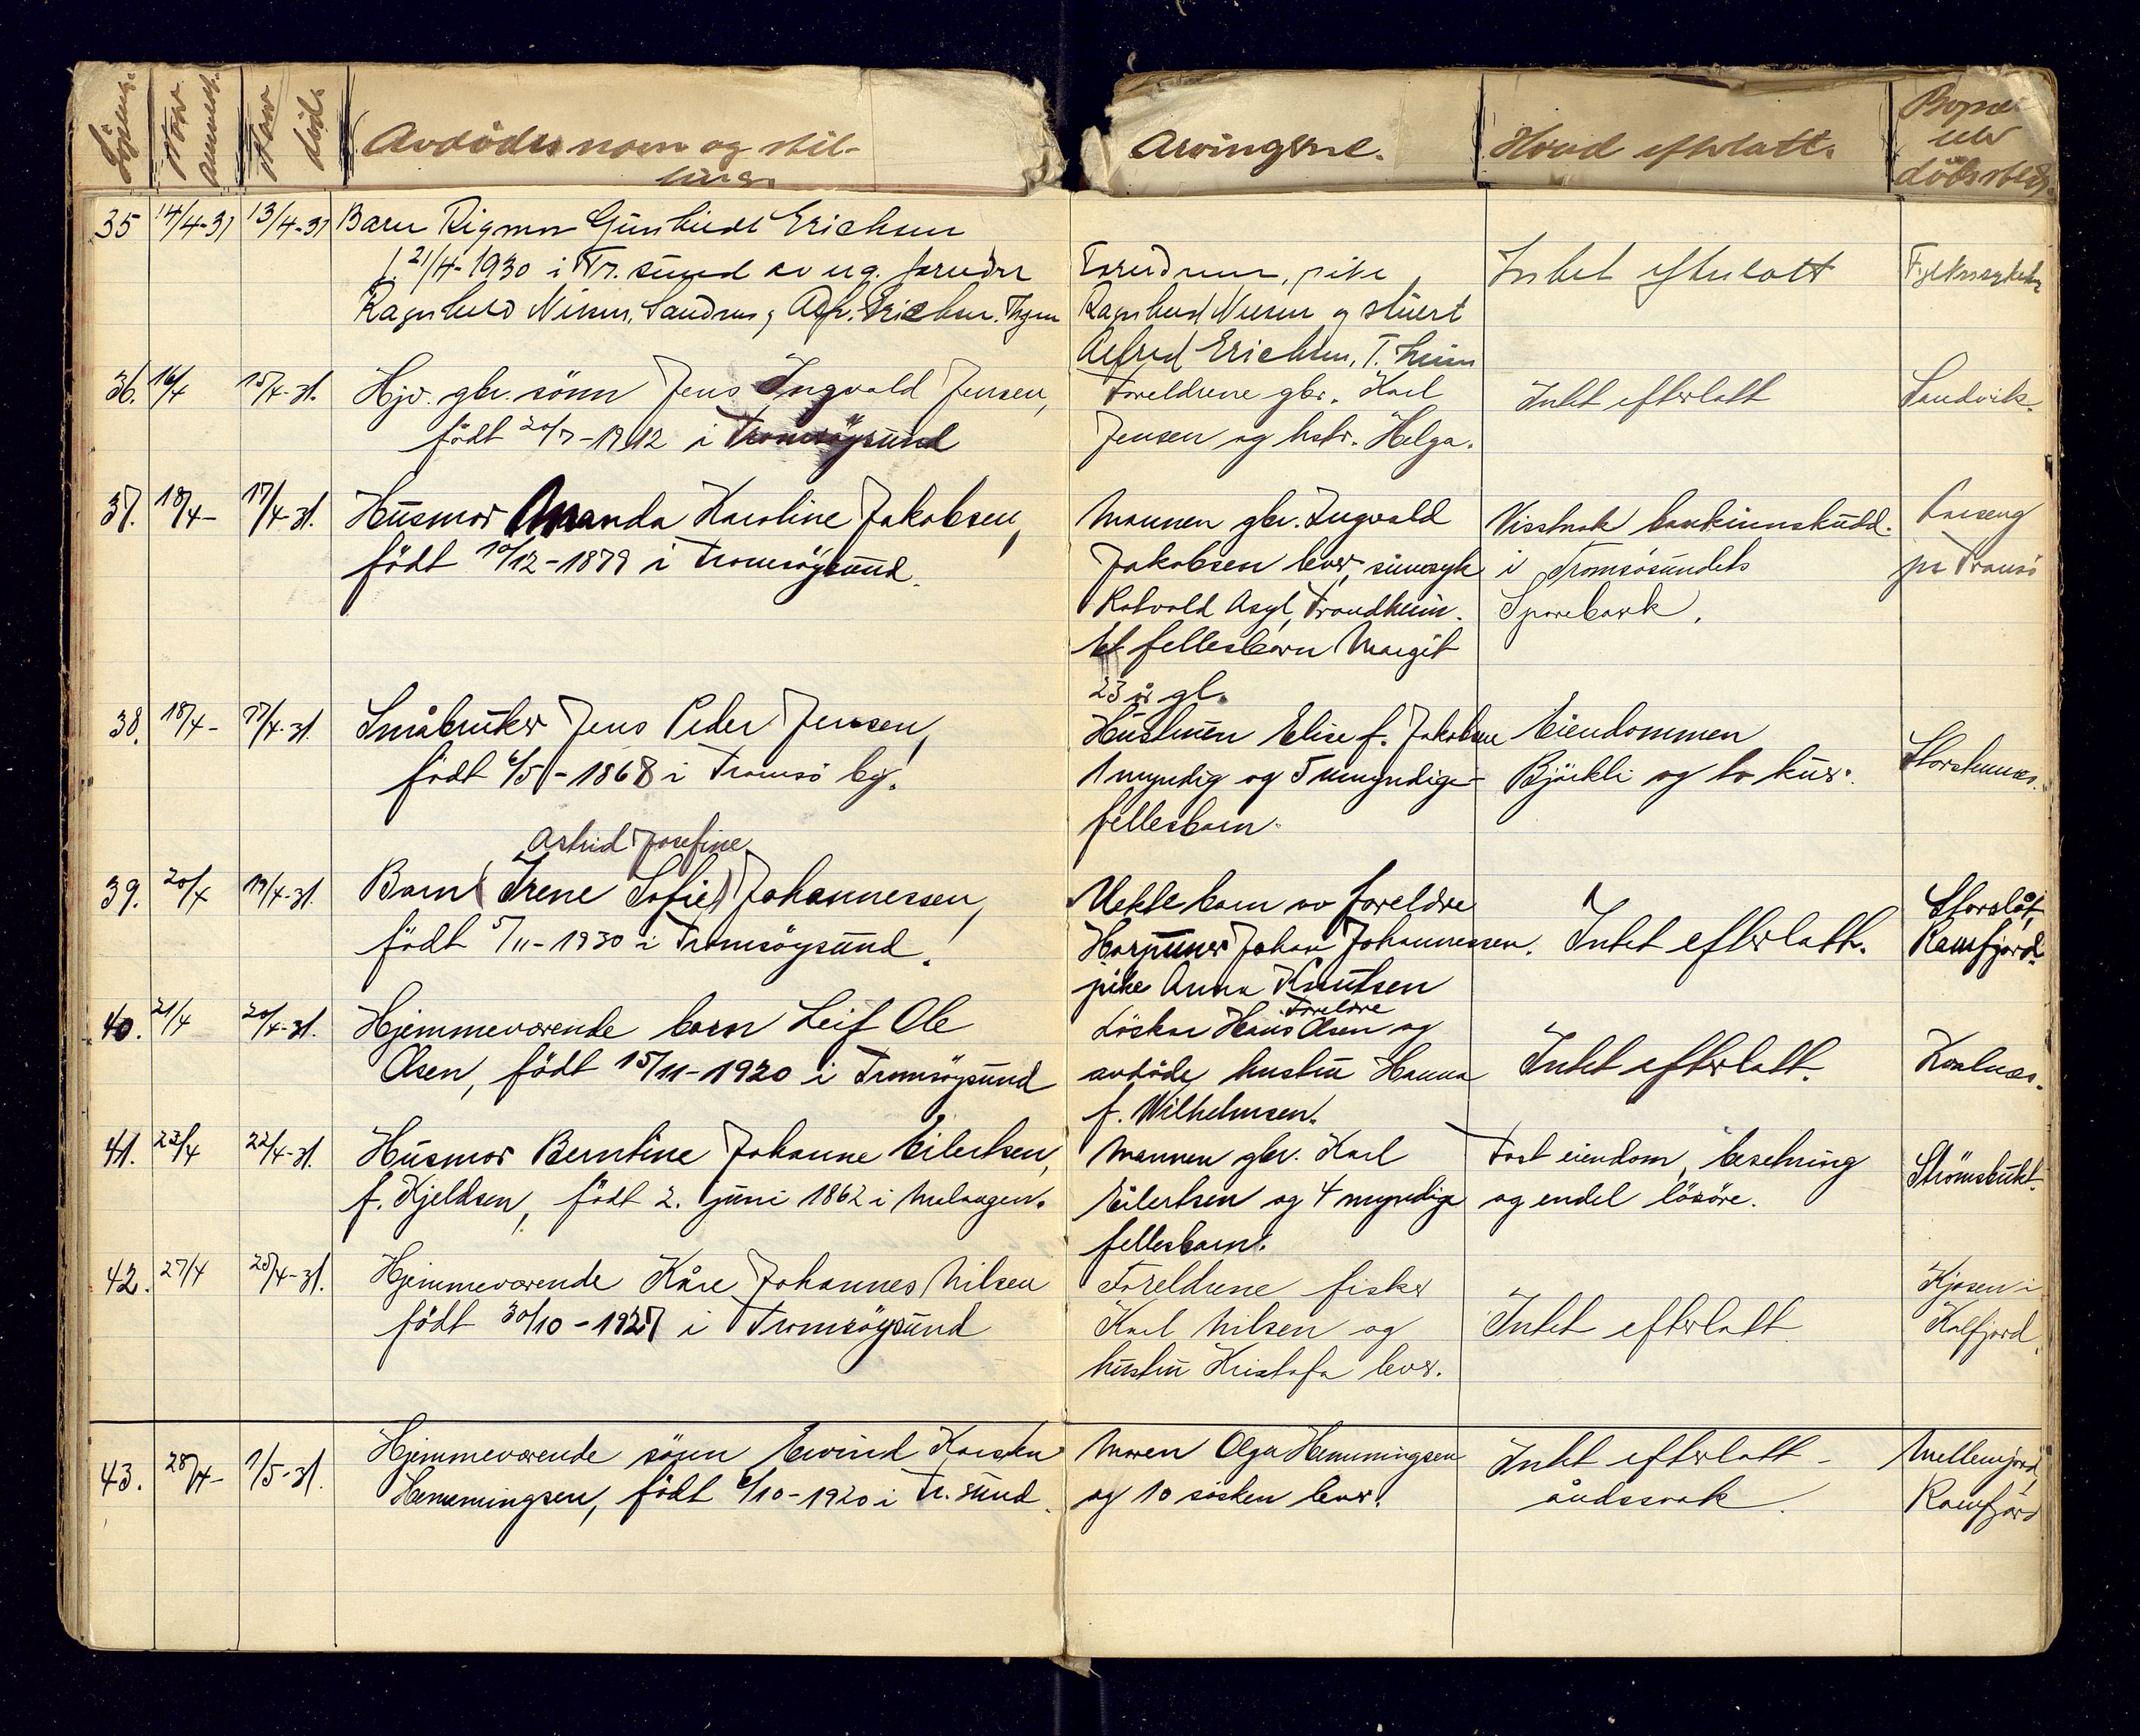 Löpenr.
Naar anmeldt.
Naar död.
Avdödes navn og stil-
ling.
Arvingerne.
Hvad efterlatt.
Bopæl
eller
dödssted.
35 14/4-31 13/4-31 Barn Rigmor Gunhild Erichsen
f. 21/4-1930 i Tr. sund av ug. foreldre
Ragnhild Nilsen, Sandnes, Alfr. Erichsen.
Foreldrene, pike
Ragnhild Nilsen og stuert
Alfred Erichsen, T. heim
Intet efterlatt
Fylkessykeh.
36. 16/4 15/4-31. Hjv. gbr. sönn Jens Ingvald Jensen,
födt 20/7-1912 i Tromsöysund
Foreldrene gbr. Karl
Jensen og hstr. Helga.
Intet efterlatt
Sandvik.
37. 18/4- 17/4-31. Husmor Amanda Karoline Jakobsen,
födt 10/12-1879 i Tromsöysund.
Mannen gbr. Ingvald
Jakobsen lever, sinnsyk
Rotvold Asyl, Trondheim.
Et fellesbarn Margit
23 år gl.
Visstnok bankinnskudd.
i Tromsösundets
Sparebank.
på Tromsö
38. 18/4- 17/4-31. Småbruker Jens Peder Jensen,
födt 6/5-1868 i Tromsö by.
Hustruen Elise f. Jakobsen
1 myndig og 5 umyndige
fellesbarn.
Eiendommen
Björkli og to kuer.
Storskunes.
Astrid Josefine
39. 20/4 19/4-31. Barn (Irene Sofie) Johannessen,
födt 5/11-1930 i Tromsöysund.
Uekte barn av foreldre
Harpuner Johan Johannessen.
pike Anna Knutsen
Intet efterlatt.
Storslåt,
Ramfjord.
40. 21/4 20/4-31. Hjemmeværende barn Leif Ole
Olsen, födt 15/11-1920 i Tromsöysund
Foreldre
Löskar Hans Olsen og
avdöde hustru Hanna
f. Wilhelmsen.
Intet efterlatt.
Kvalnes.
41. 23/4 22/4-31. Husmor Berntine Johanne Eilertsen,
f. Kjeldsen, födt 2. juni 1862 i Malangen.
Mannen gbr. Karl
Eilertsen og 4 myndige
fellesbarn.
Fast eiendom, besetning
og endel lösöre.
Strömsbukt.
42. 27/4 25/4-31. Hjemmeværende Kåre Johannes Nilsen
födt 30/10-1927 i Tromsöysund
Foreldrene fisker
Karl Nilsen og
hustru Kristofa lever.
Intet efterlatt
Kjosen i
Kalfjord.
43. 28/4- 1/5-31. Hjemmeværende sönn Eivind Karsten
Hemmingsen, födt 6/10-1920 i Tr. sund.
Moren Olga Hemmingsen
og 10 sösken lever.
Intet efterlatt -
åndssvak.
Mellemjord,
Ramfjord